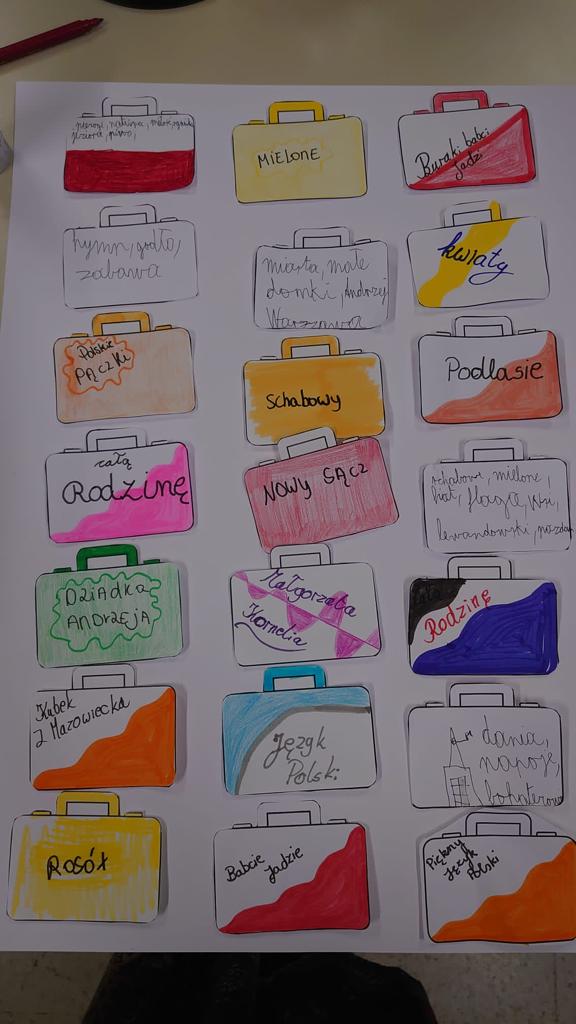 pierogi,
jeziora,
MIELONE
Buraki babci
Jadzi
hymn, godło,
zabawa
miasta, małe
domki, Andrzej
Warszawa
kwiaty
Polskie
PĄCZKI
Schabowy
Podlasie
całą
Rodzinę
NOWY SĄCZ
schabowe, mielone,
flaga,
lewandowski,
DZIADKA
ANDRZEJA
Małgorzata
Kornelia
Rodzinę
Kubek
z Mazowiecka
Język
Polski
dania,
napoje,
bohaterow
ROSÓŁ
Babcie Jadzie
Piękny
Język
Polski